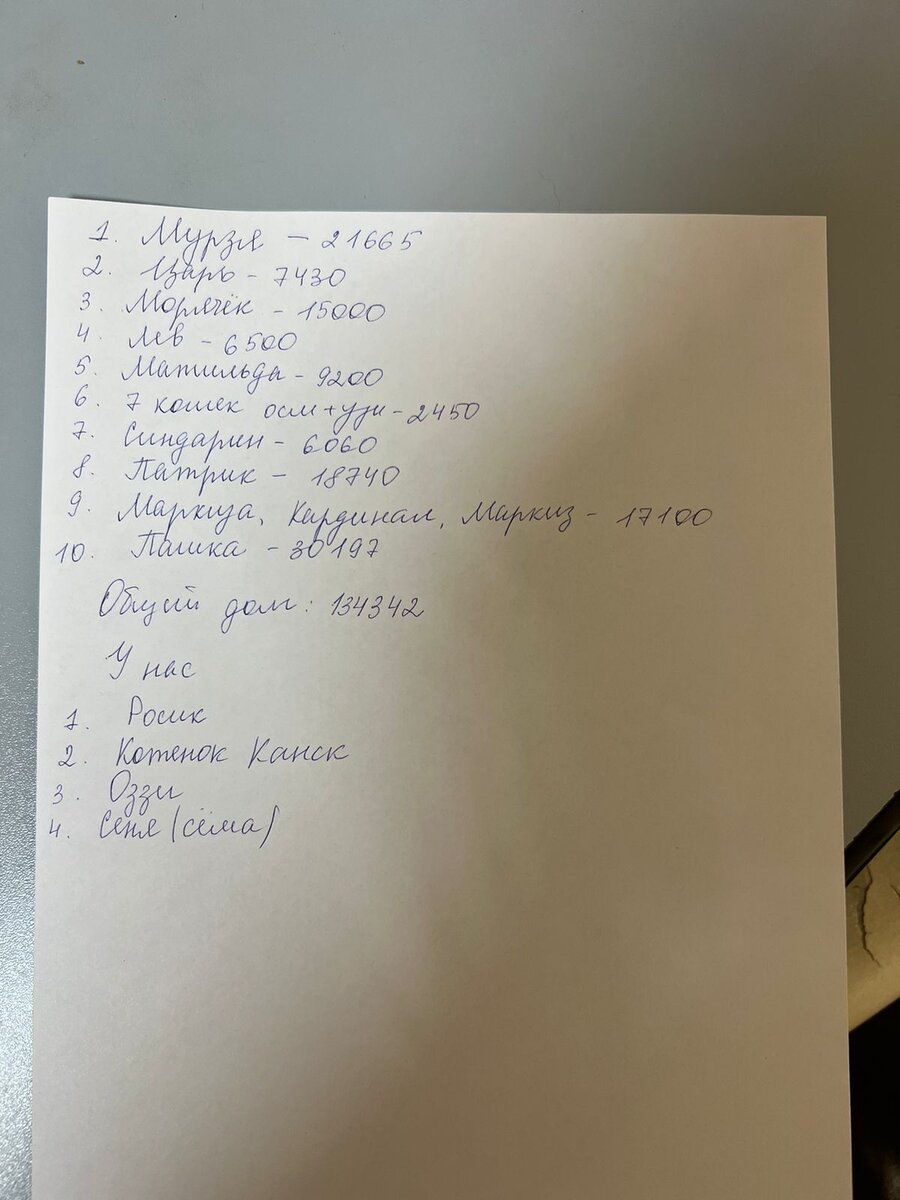 1. Мурзя - 21665
2. Царь - 7430
3. Морячёк - 15000
4. Лев - 6500
5. Матильда - 9200
6. 7 кошек осм+узи - 2450
7. Синдарин - 6060
8. Патрик - 18740
9. Маркиза, Кардинал, Маркиз - 17100
10. Пашка - 30197
Общий долг: 134342
У нас
1. Росик
2. Котенок Канск
3. Оззи
4. Сеня (сёма)